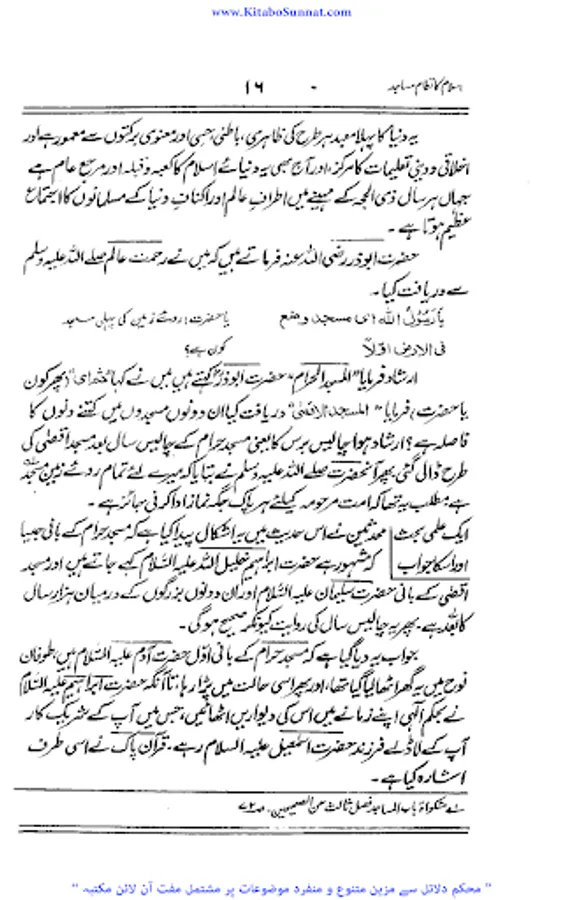 www.KitaboSunnat.com
اسلام کا نظام مساجد - ۱۶
یہ دنیا کا پہلا معبد ہر طرح کی ظاہری، باطنی، حسی اور معنوی برکتوں سے معمور ہے اور
اخلاقی و دینی تعلیمات کا مرکز، اور آج بھی یہ دنیائے اسلام کا کعبہ و قبلہ اور مرجع عام ہے
جہاں ہر سال ذی الحجہ کے مہینے میں اطرافِ عالم اور اکنافِ دنیا کے مسلمانوں کا اجتماع
عظیم ہوتا ہے۔
حضرت ابوذر رضی اللہ عنہ فرماتے ہیں کہ میں نے رحمت عالم صلے اللہ علیہ وسلم
سے دریافت کیا۔
یا رسولُ اللہ ای مسجد وضع یا حضرت! روئے زمین کی پہلی مسجد
فی الارض اوّلاً کون ہے؟
ارشاد فرمایا "المسجد الحرام" حضرت ابوذرؓ کہتے ہیں میں نے کہا "ثم ای" (پھر کون
یا حضرت) فرمایا "المسجد الاقصیٰ" دریافت کیا ان دونوں مسجدوں میں کتنے دنوں کا
فاصلہ ہے؟ ارشاد ہوا چالیس برس کا یعنی مسجد حرام کے چالیس سال بعد مسجد اقصیٰ کی
طرح ڈالی گئی، پھر آنحضرت صلے اللہ علیہ وسلم نے بتایا کہ میرے لئے تمام روئے زمین مسجد
ہے مطلب یہ تھا کہ امت مرحومہ کیلئے ہر پاک جگہ نماز ادا کرنی جائز ہے۔
ایک علمی بحث محدثین نے اس حدیث میں یہ اشکال پیدا کیا ہے کہ مسجد حرام کے بانی جیسا
اور اسکا جواب کہ مشہور ہے حضرت ابراہیم خلیل اللہ علیہ السلام کہے جاتے ہیں اور مسجد
اقصیٰ کے بانی حضرت سلیمان علیہ السلام اور ان دونوں بزرگوں کے درمیان ہزار سال
کا بُعد ہے، پھر یہ چالیس سال کی روایت کیونکر صحیح ہوگی۔
جواب یہ دیا گیا ہے کہ مسجد حرام کے بانی اوّل حضرت آدم علیہ السلام ہیں، طوفان
نوح میں یہ گھر اٹھا لیا گیا تھا، اور پھر اسی حالت میں پڑا رہا، تا آنکہ حضرت ابراہیم علیہ السلام
نے بحکم الٰہی اپنے زمانے میں اس کی دیواریں اٹھائیں، جس میں آپ کے شریک کار
آپ کے لاڈلے فرزند حضرت اسمٰعیل علیہ السلام رہے۔ قرآن پاک نے اسی طرف
اشارہ کیا ہے۔
لے مشکوٰۃ باب المساجد فصل ثالث عن الصحیحین۔ صـ۷۲
" محکم دلائل سے مزین متنوع و منفرد موضوعات پر مشتمل مفت آن لائن مکتبہ "